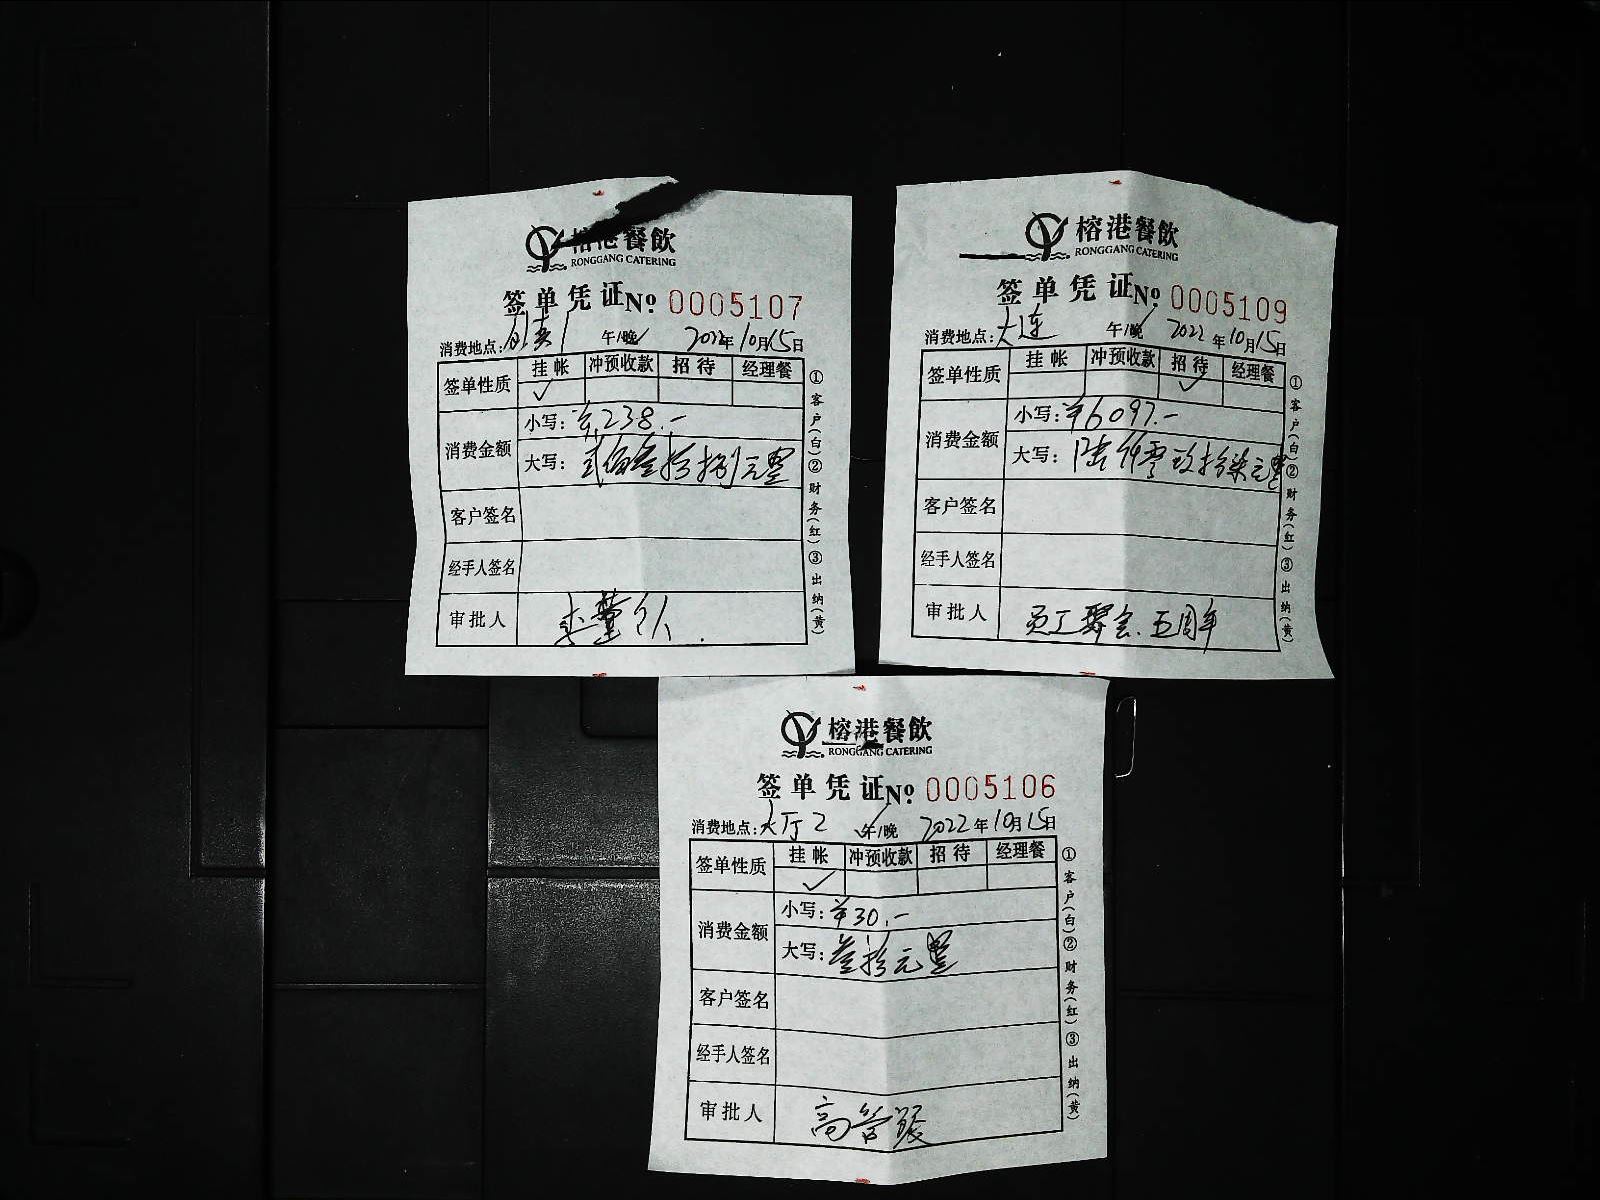 榕港餐飲
RONGGANG CATERING
签单凭证 No 0005107
消费地点: 午/晚 2022年10月15日
签单性质 挂帐 冲预收款 招待 经理餐
✓
消费金额
小写:¥238.-
大写:贰佰叁拾捌元整
客户签名
经手人签名
审批人
①客户(白)②财务(红)③出纳(黄)
榕港餐飲
RONGGANG CATERING
签单凭证 No 0005109
消费地点:大连 午/晚 2022年10月15日
签单性质 挂帐 冲预收款 招待 经理餐
✓
消费金额
小写:¥6097.-
大写:陆仟零玖拾柒元整
客户签名
经手人签名
审批人 员工聚会.五周年
①客户(白)②财务(红)③出纳(黄)
榕港餐飲
RONGGANG CATERING
签单凭证 No 0005106
消费地点:大厅2 午/晚 2022年10月15日
签单性质 挂帐 冲预收款 招待 经理餐
✓
消费金额
小写:¥30.-
大写:叁拾元整
客户签名
经手人签名
审批人 高管餐
①客户(白)②财务(红)③出纳(黄)